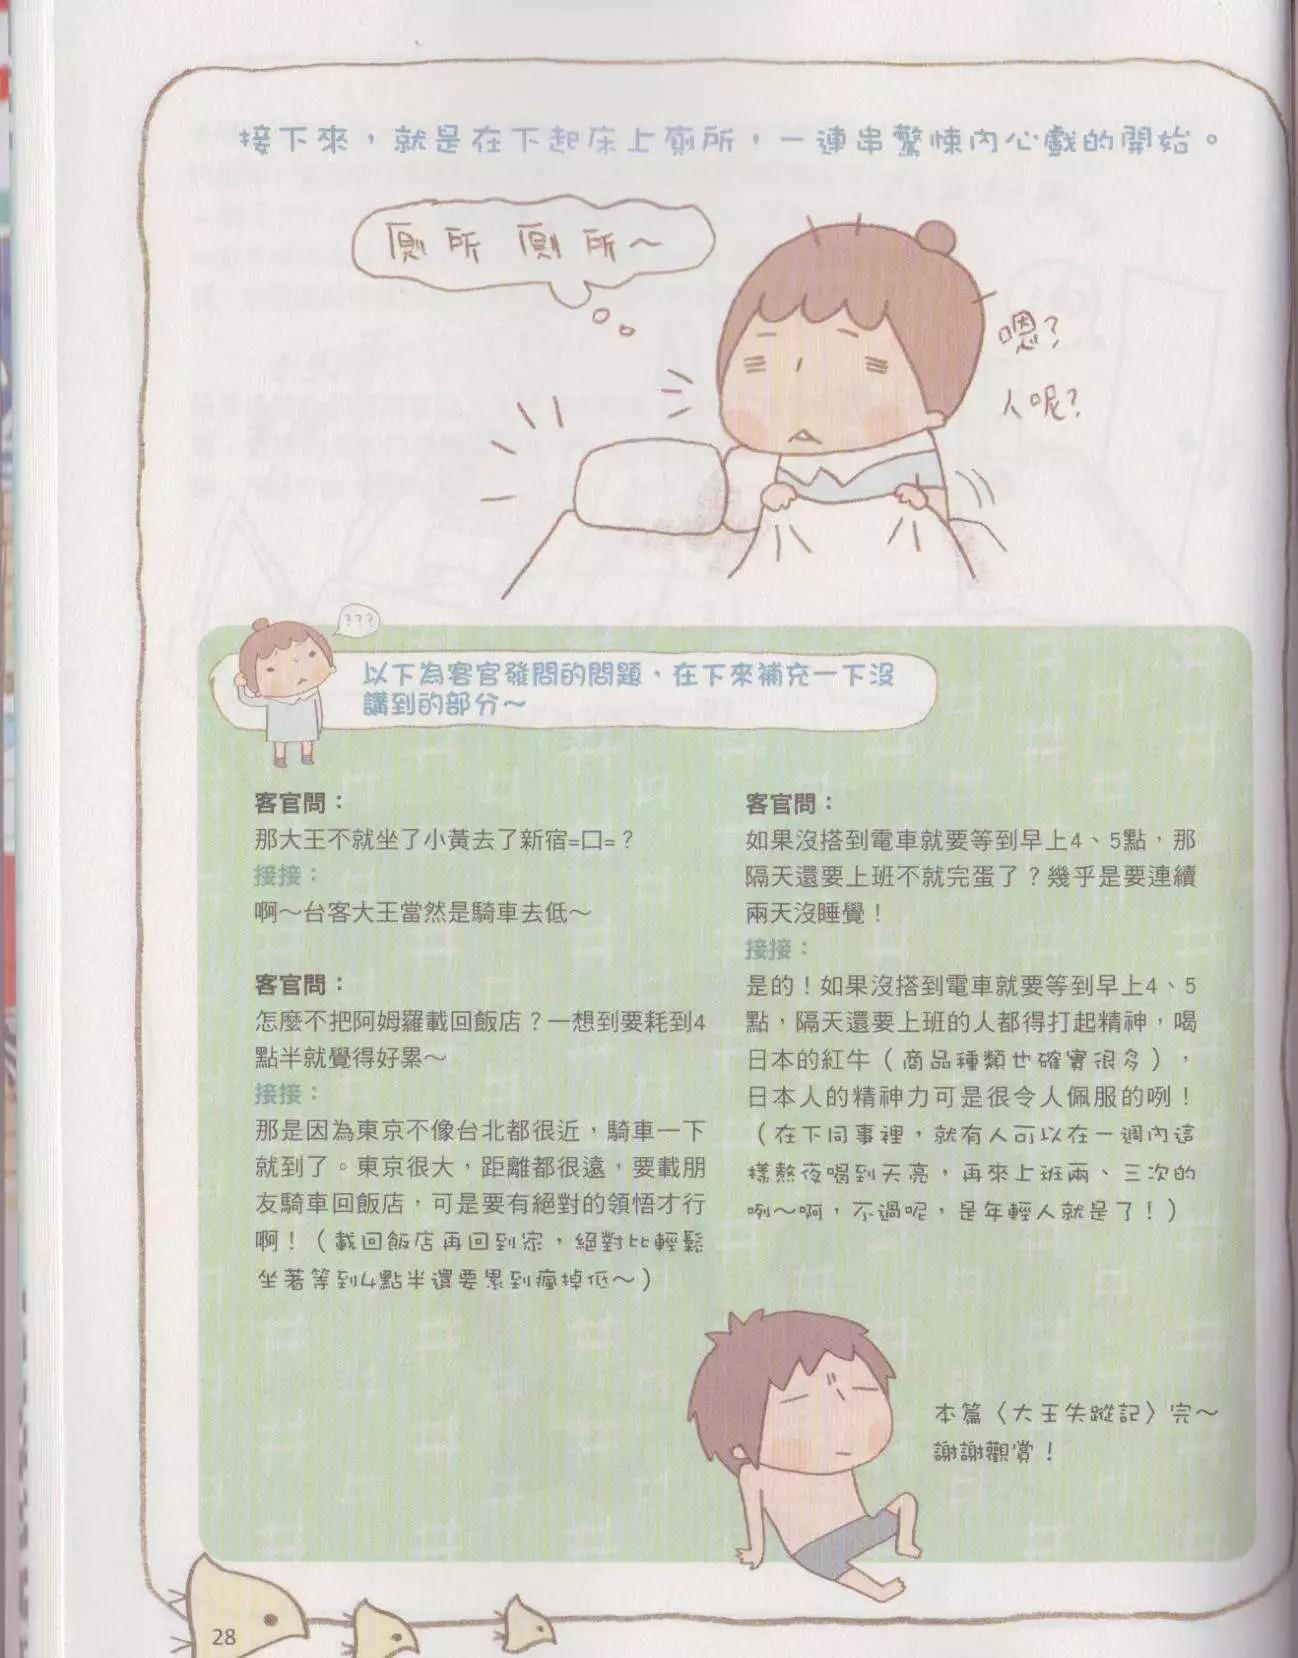 接下來，就是在下起床上廁所，一連串驚悚內心戲的開始。
廁所 廁所～
嗯？
人呢？
???
以下為客官發問的問題，在下來補充一下沒
講到的部分～
客官問：
那大王不就坐了小黃去了新宿=口=？
接接：
啊～台客大王當然是騎車去低～
客官問：
怎麼不把阿姆羅載回飯店？一想到要耗到4
點半就覺得好累～
接接：
那是因為東京不像台北都很近，騎車一下
就到了。東京很大，距離都很遠，要載朋
友騎車回飯店，可是要有絕對的領悟才行
啊！（載回飯店再回到家，絕對比輕鬆
坐著等到4點半還要累到瘋掉低～）
客官問：
如果沒搭到電車就要等到早上4、5點，那
隔天還要上班不就完蛋了？幾乎是要連續
兩天沒睡覺！
接接：
是的！如果沒搭到電車就要等到早上4、5
點，隔天還要上班的人都得打起精神，喝
日本的紅牛（商品種類也確實很多），
日本人的精神力可是很令人佩服的咧！
（在下同事裡，就有人可以在一週內這
樣熬夜喝到天亮，再來上班兩、三次的
咧～啊，不過呢，是年輕人就是了！）
本篇〈大王失蹤記〉完～
謝謝觀賞！
28